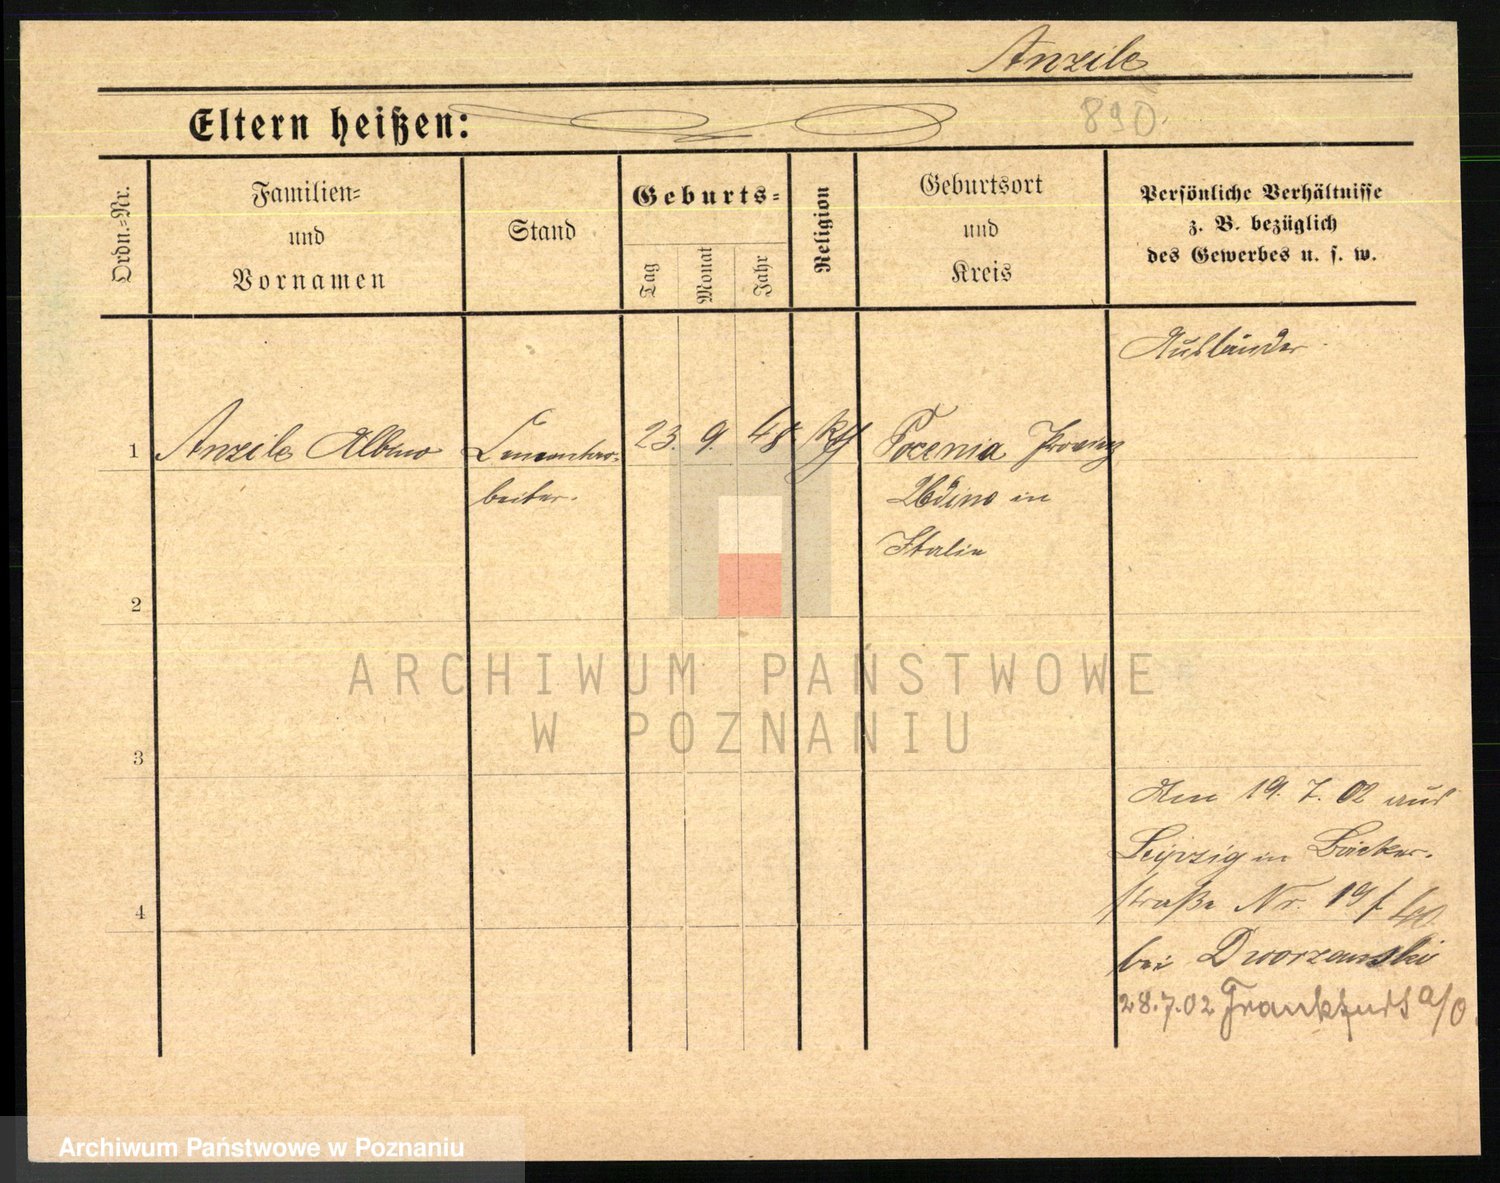 Anzile
890
Eltern heißen:
Ordn.=Nr.
Familien=
und
Vornamen
Stand
Geburts=
Tag
Monat
Jahr
Religion
Geburtsort
und
Kreis
Persönliche Verhältnisse
z. B. bezüglich
des Gewerbes u. s. w.
Ausländer
1 Anzile Albino Cementar- 23. 9. 48 kth Pocenia Provinz
beiter. Udine in
Italien
2
ARCHIWUM PAŃSTWOWE
W POZNANIU
3
Am 19. 7. 02 aus
Leipzig in Bäcker-
4 straße Nr. 19
bei Dworzanski
28.7.02 Frankfurt a/O.
Archiwum Państwowe w Poznaniu